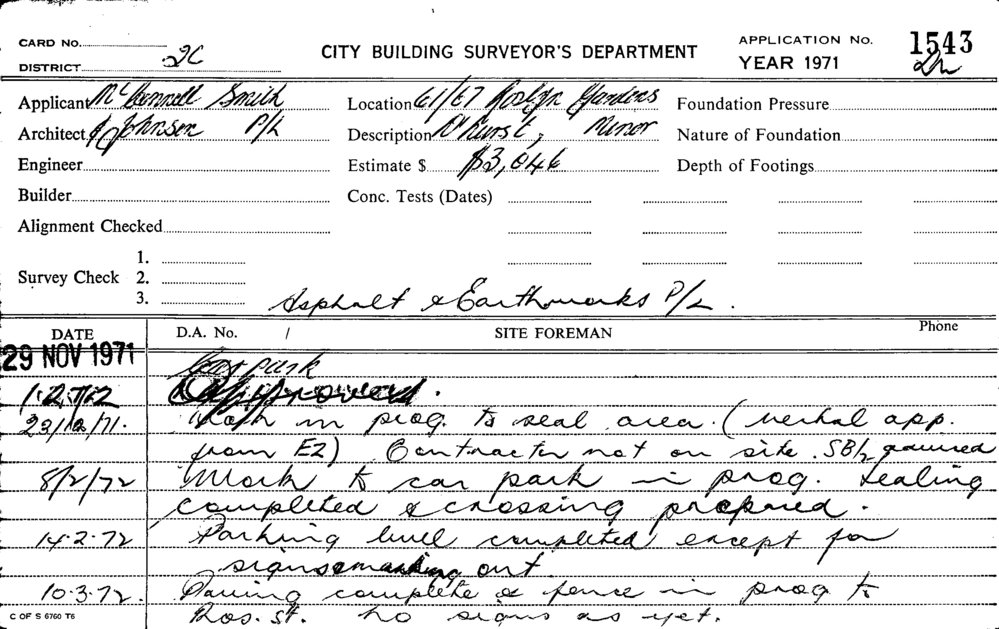 CARD No. CITY BUILDING SURVEYOR'S DEPARTMENT APPLICATION No. 1543
DISTRICT 2C YEAR 1971
Applicant McConnell Smith Location 61/67 Roslyn Gardens Foundation Pressure
Architect & Johnson P/L Description D'hurst, Minor Nature of Foundation
Engineer Estimate $ $3,046 Depth of Footings
Builder Conc. Tests (Dates)
Alignment Checked
1.
Survey Check 2.
3.
Asphalt & Earthworks P/L.
DATE D.A. No. / SITE FOREMAN Phone
29 NOV 1971 Car park
1.2.72 Approved.
23/12/71. Work in prog. to seal area. (verbal app.
from EZ) Contractor not on site.
8/2/72 Work to car park in prog. Sealing
completed & crossing prepared.
14.2.72 Parking level completed except for
signs & marking out.
10.3.72. Paving complete & fence in prog to
Ros. St. No signs as yet.
C OF S 6760 T6